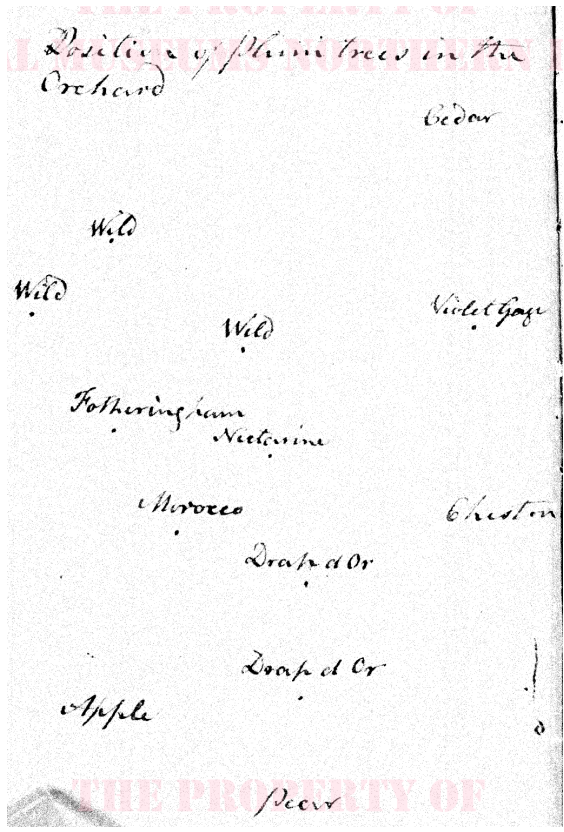 THE PROPERTY OF
AL MUSEUMS NORTHERN
Position of Plum trees in the
Orchard
Cedar
Wild
Wild
Violet Gage
Wild
Fotheringham
Nectarine
Morocco
Cheston
Drap d Or
Drap d Or
Apple
THE PROPERTY OF
Pear